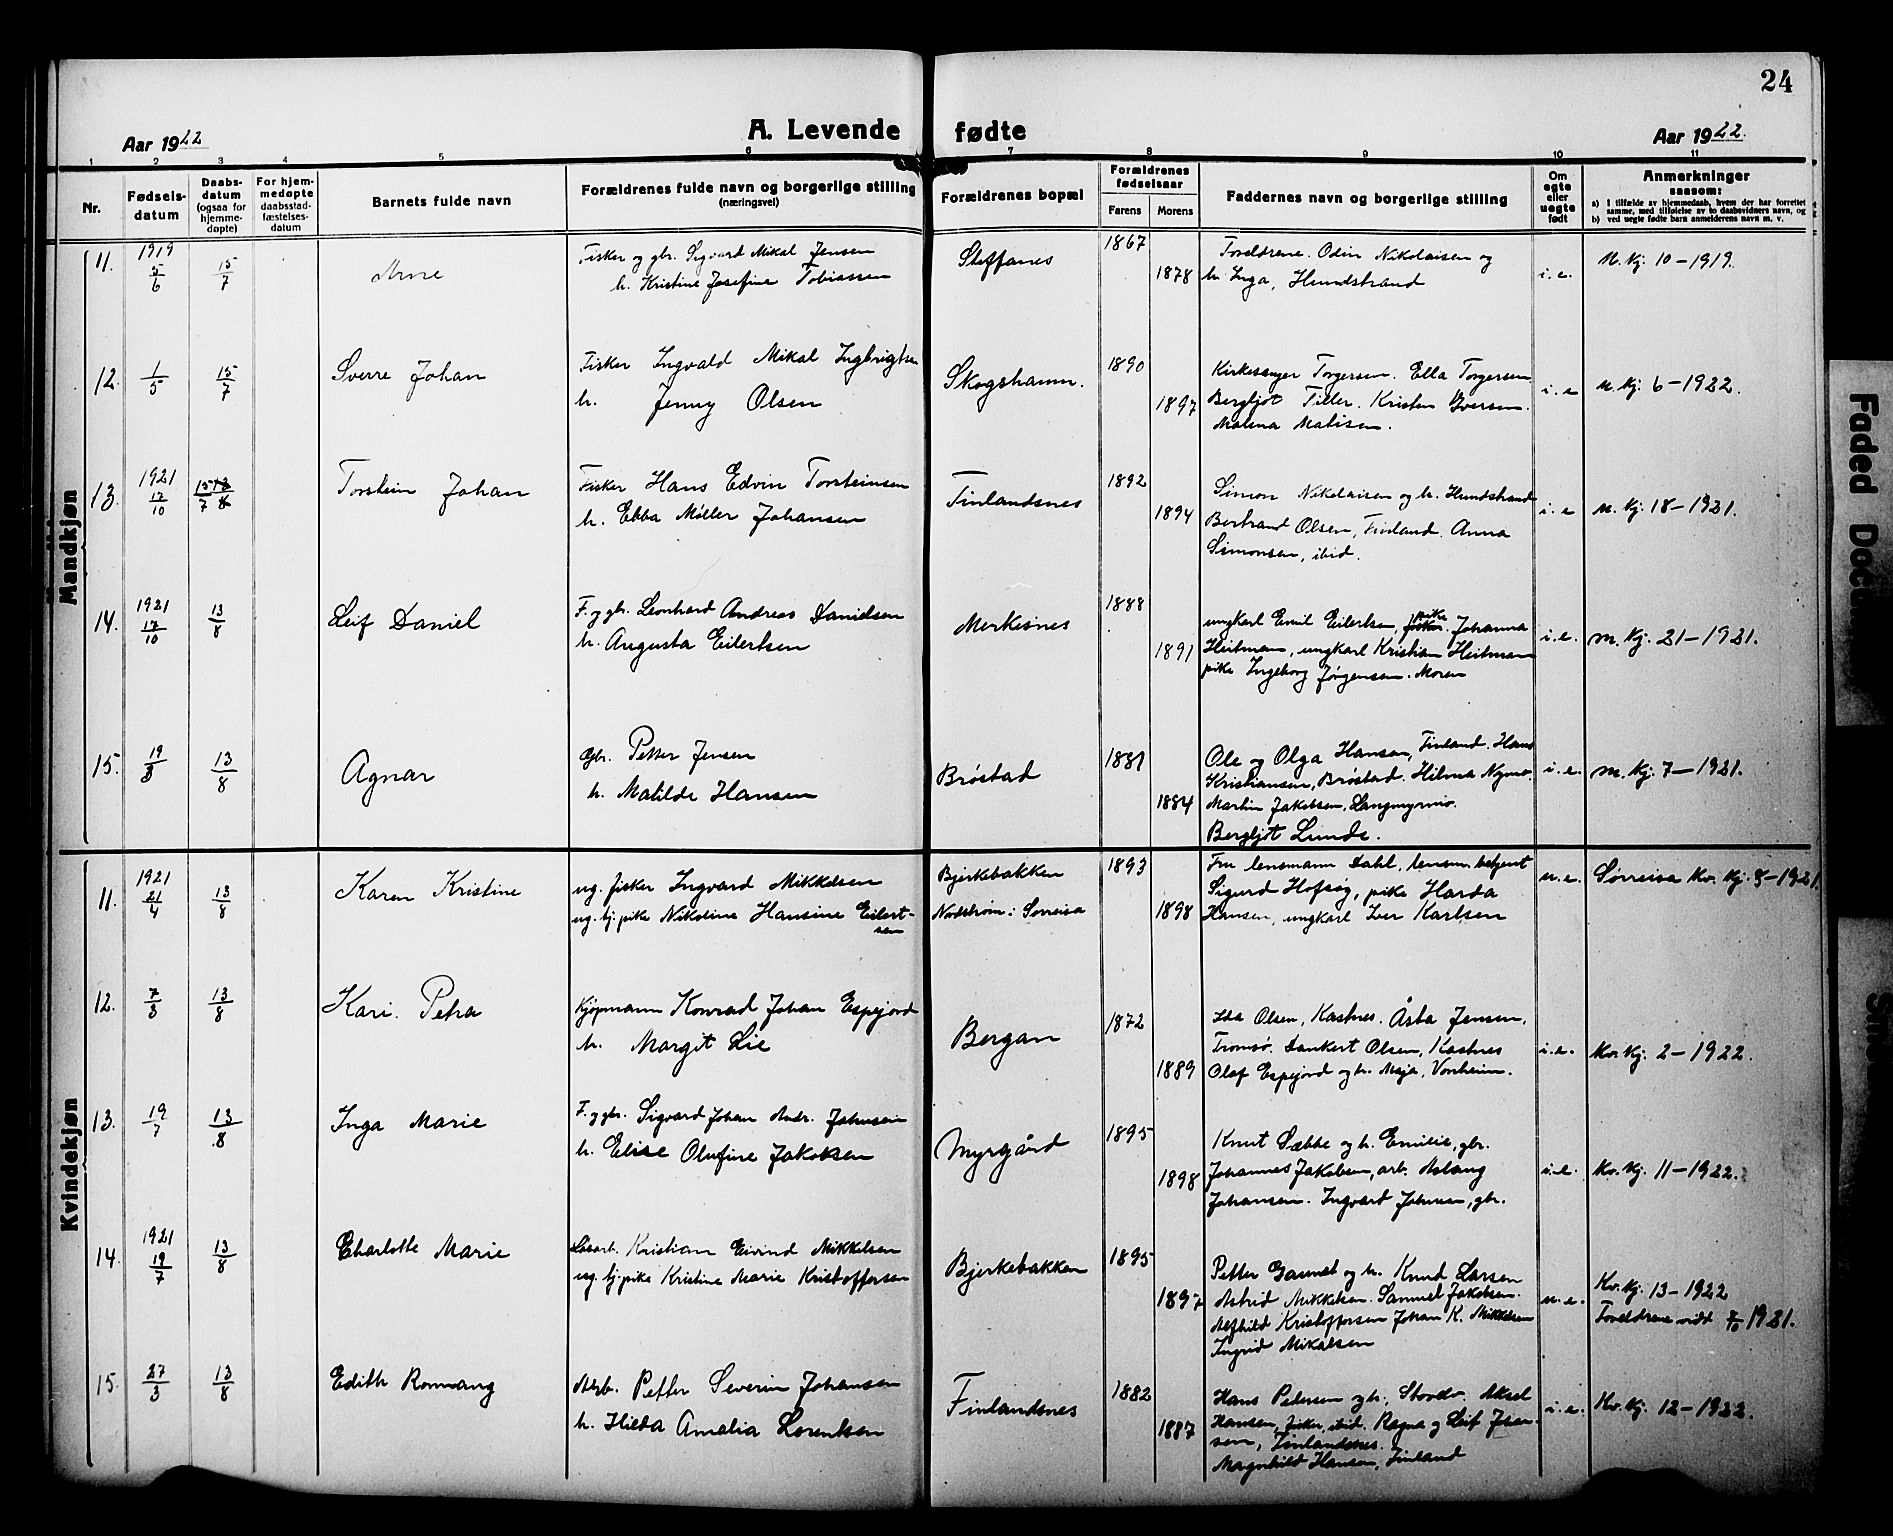 24
A. Levende fødte
Aar 1922
Aar 1922.
1 2 3 4 5 6 7 8 9 10 11
Nr.
Fødsels-
datum
Daabs-
datum
(ogsaa for
hjemme-
døpte)
For hjem-
medøpte
daabsstad-
fæstelses-
datum
Barnets fulde navn
Forældrenes fulde navn og borgerlige stilling
(næringsvei)
Forældrenes bopæl
Forældrenes
fødselsaar
Farens
Morens
Faddernes navn og borgerlige stilling
Om
egte
eller
uegte
født
Anmerkninger
saasom:
a) I tilfælde av hjemmedaab, hvem der har forrettet
samme, med tilføielse av to daabsvidners navn, og
b) ved uegte fødte barn anmelderens navn m. v.
Mandkjøn
11. 1919 5/6 15/7 Arne
Fisker og gbr. Sigvard Mikal Jensen
h. Kristine Josefine Tobiassen
Steffanes 1867 1878
Foreldrene. Odin Nikolaisen og
h. Inga, Hundstrand
i.e. M. Kj. 10-1919.
12. 1/5 15/7 Sverre Johan
Fisker Ingvald Mikal Ingbrigtsen
h. Jenny Olsen
Skogshamn. 1890 1897
Kirkesanger Torgersen. Ella Torgersen
Bergljot Tiller. Kristen Iversen.
Malena Matisen.
i.e. M. Kj. 6-1922.
13. 1921 17/10 15/7 Torstein Johan
Fisker Hans Edvin Torsteinsen
h. Ebba Møller Johansen
Finlandsnes 1892 1894
Simon Nikolaisen og h. Hundstrand
Bertrand Olsen, Finland. Anna
Simonsen, ibid.
i.e. M. Kj. 18-1921.
14. 1921 17/10 13/8 Leif Daniel
F. og gbr. Leonhard Andreas Danielsen
h. Augusta Eilertsen
Merkesnes 1888 1891
ungkarl Emil Eilertsen, pike Johanna
Heitmann, ungkarl Kristian Heitmann
pike Ingeborg Jørgensen. Moren
i.e. M. Kj. 21-1921.
15. 19/3 13/8 Agnar
Gbr. Petter Jensen
h. Matilde Hansen
Brøstad 1881 1884
Ole og Olga Hansen, Finland. Hans
Kristiansen, Brøstad. Hilma Nymo.
Martin Jakobsen, Langmyrmo.
Bergljot Lunde.
i.e. M. Kj. 7-1921.
Kvindekjøn
11. 1921 21/4 13/8 Karen Kristine
ug. fisker Ingvard Mikkelsen
ug. tj. pike Nikoline Hansine Eilert-
sen
Bjerkebakken
Nordstrøm i Sørreisa
1893 1898
Fru lensmann Dahl, lensm. betjent
Sigurd Hofsøy, pike Harda
Hansen, ungkarl Iver Karlsen
u.e. Sørreisa Kv. Kj. 5-1921.
12. 7/3 13/8 Kari. Petra
Kjøpmann Konrad Johan Espejord
h. Margit Lie
Bergan 1872 1889
Ida Olsen, Kastnes. Åsta Jensen,
Tromsø. Dankert Olsen, Kastnes
Olaf Espejord og h. Maja, Vonheim.
i.e. Kv. Kj. 2-1922.
13. 19/7 13/8 Inga Marie
F. og gbr. Sigvard Johan Andr. Johnsen
h. Elise Olufine Jakobsen
Myrgård 1895 1898
Knut Sæbbe og h. Emilie, gbr.
Johannes Jakobsen, arb. Aslaug
Johansen. Ingvard Johnsen, gbr.
i.e. Kv. Kj. 11-1922.
14. 1921 19/7 13/8 Charlotte Marie
Løsarb. Kristian Eivind Mikkelsen
ug. tj. pike Kristine Marie Kristoffersen
Bjerkebakken 1895 1897
Petter Gamst og h. Knud Larsen
Astrid Mikkelsen. Samuel Jakobsen.
Alfhild Kristoffersen Johan K. Mikkelsen
Ingrid Mikalsen
u.e. Kv. Kj. 13-1922
Foreldrene vidt 7/10 1921.
15. 27/3 13/8 Edith Romnang
Arb. Petter Severin Johansen
h. Hilda Amalia Lorentsen
Finlandsnes 1882 1887
Hans Petersen og h., Aksel
Hansen, fisker, ibid. Ragna og Leif Jen-
sen, Finlandsnes.
Magnhild Hansen, Finland
i.e. Kv. Kj. 12-1922.
Faded Doc